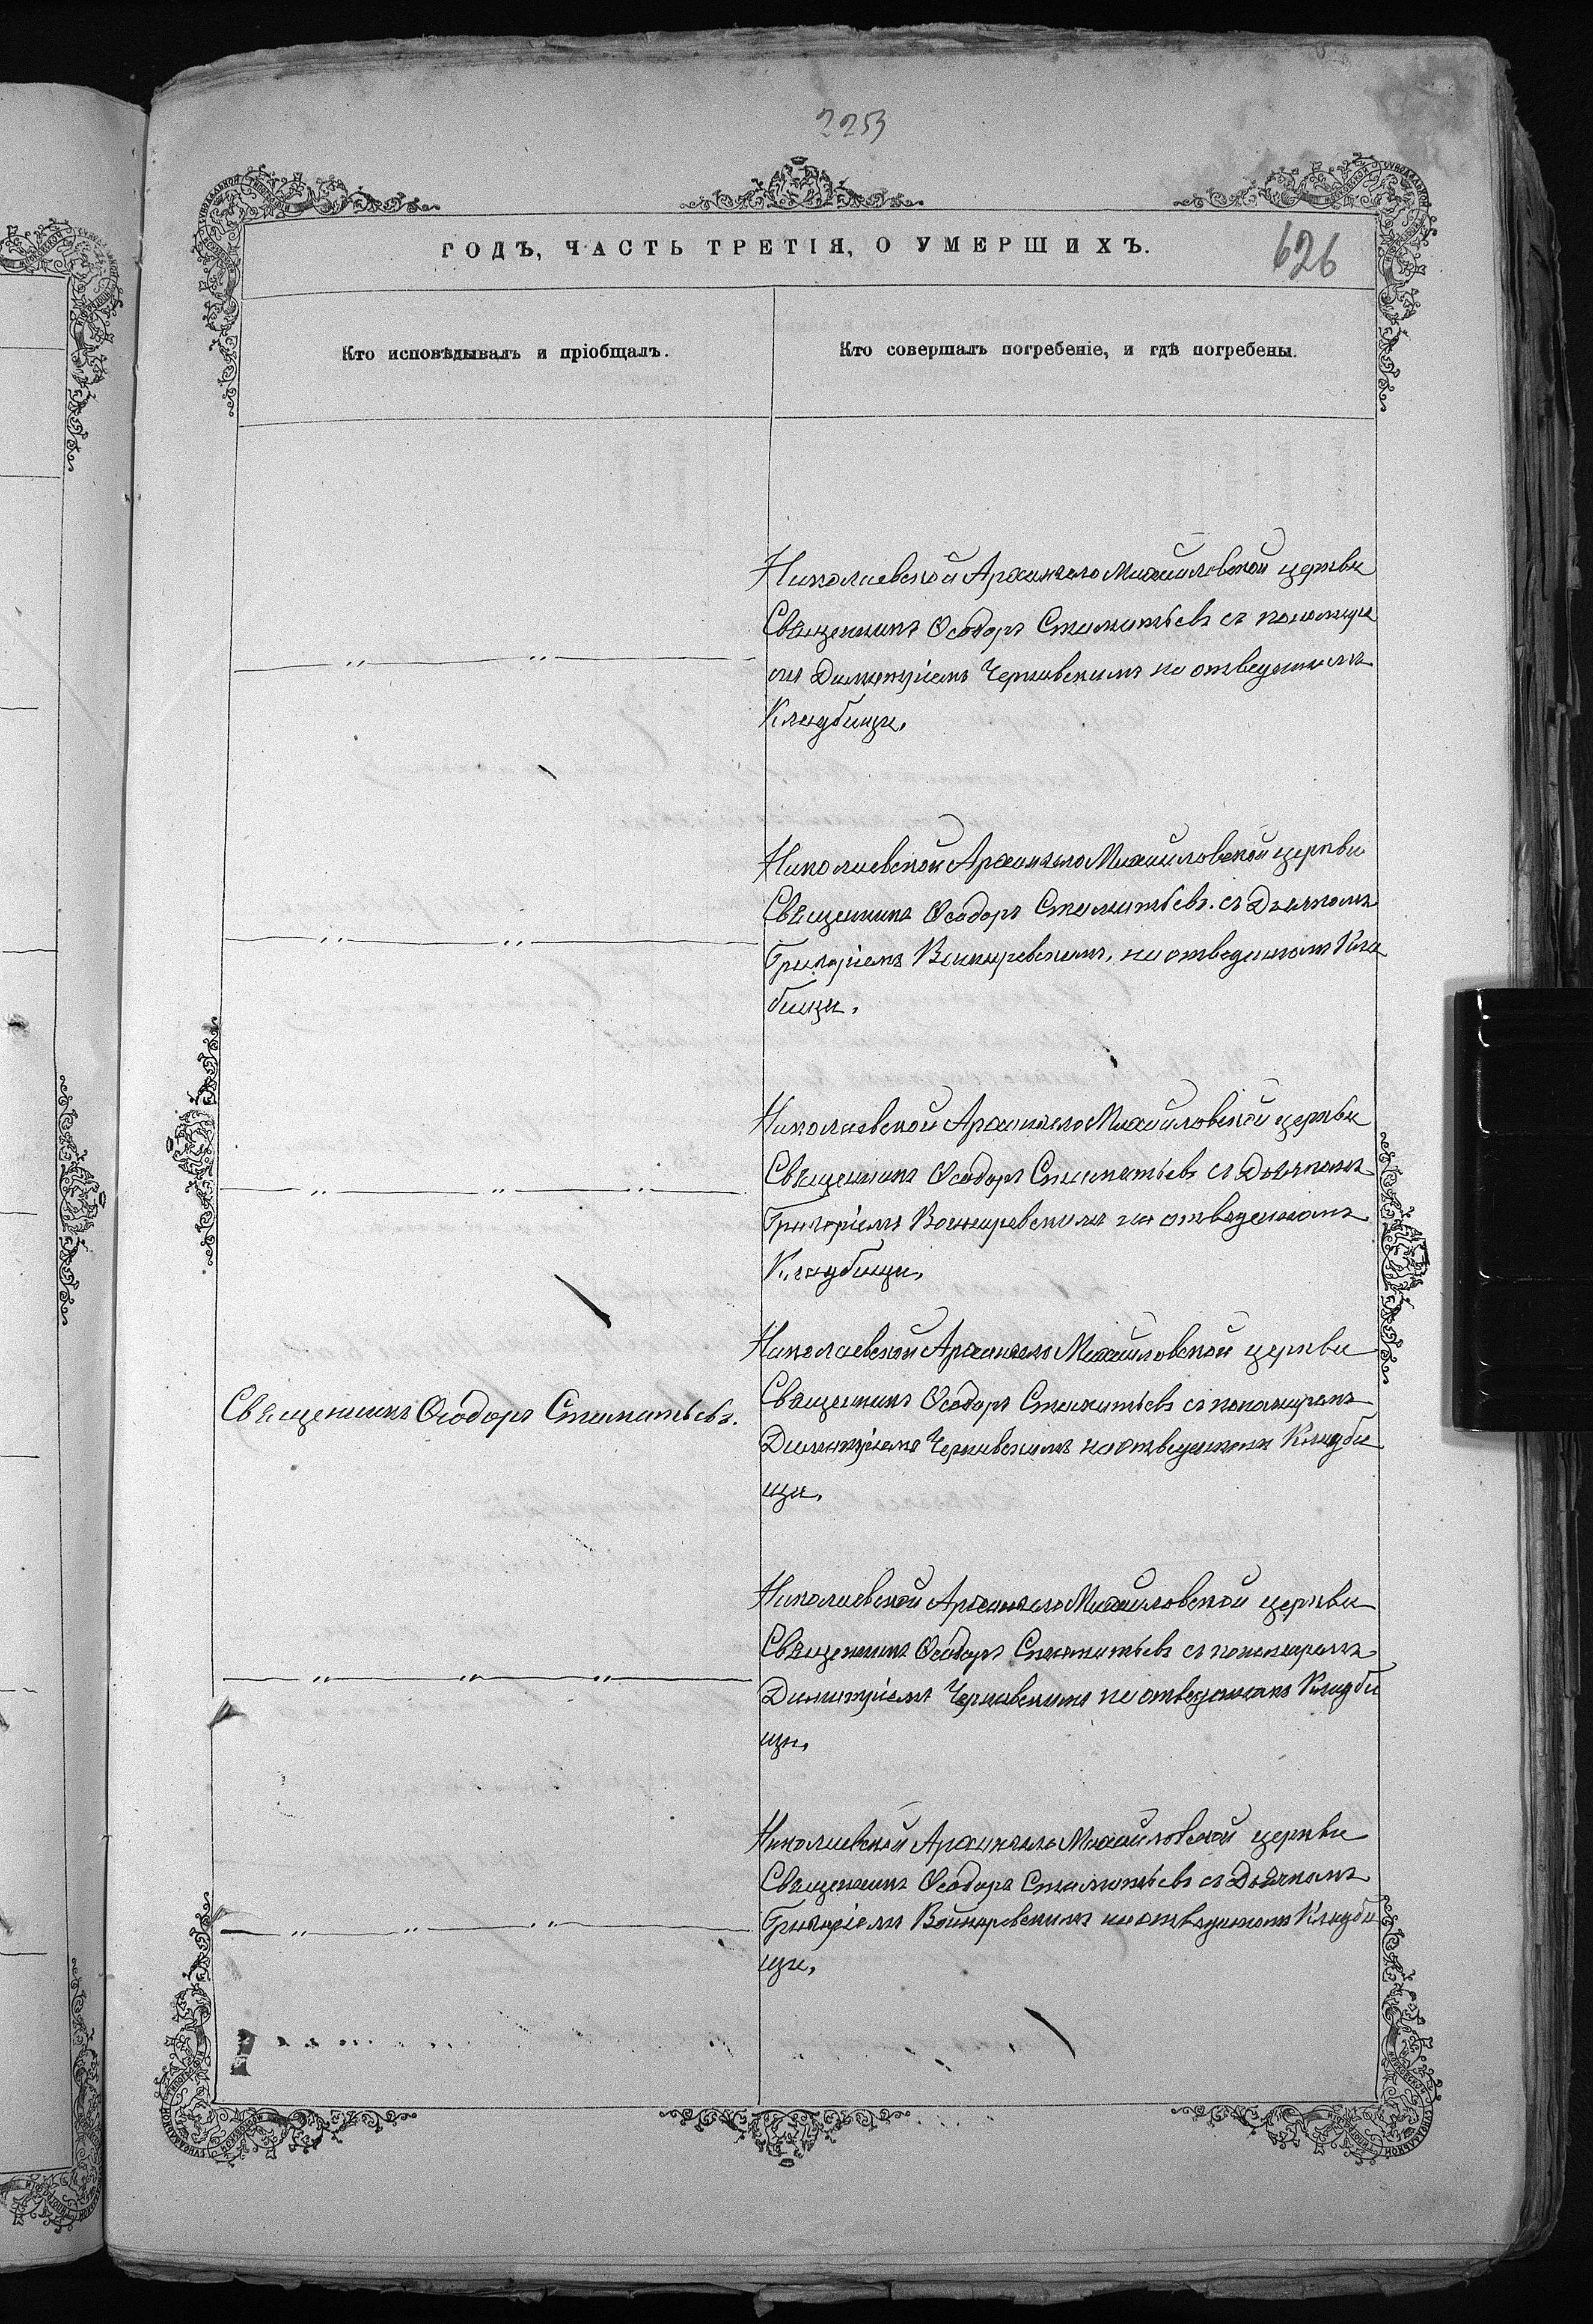 2253
ГОДЪ, ЧАСТЬ ТРЕТІЯ, О УМЕРШИХЪ.
626
Кто исповѣдывалъ и пріобщалъ.
Кто совершалъ погребеніе, и гдѣ погребены.
Николаевской Архангело Михайловской церкви
Священникъ Ѳеодоръ Стаматьевъ съ понома
Димитріемъ Чернявскимъ на отведенномъ
Кладбищѣ.
Николаевской Архангело Михайловской церкви
Священникъ Ѳеодоръ Стаматьевъ съ Дьячкомъ
Григоріемъ на отведенномъ Кла
бищѣ.
Николаевской Архангело Михайловской церкви
Священникъ Ѳеодоръ Стаматьевъ съ Дьячкомъ
Григоріемъ на отведенномъ
Кладбищѣ.
Николаевской Архангело Михайловской церкви
Священникъ Ѳеодоръ Стаматьевъ.
Священникъ Ѳеодоръ Стаматьевъ съ пономаремъ
Димитріемъ Чернявскимъ на отведенномъ Кладби
щѣ.
Николаевской Архангело Михайловской церкви
Священникъ Ѳеодоръ Стаматьевъ съ пономаремъ
Димитріемъ Чернявскимъ на отведенномъ Кладби
щѣ.
Николаевской Архангело Михайловской церкви
Священникъ Ѳеодоръ Стаматьевъ съ Дьячкомъ
Григоріемъ на отведенномъ Кладби
щѣ.